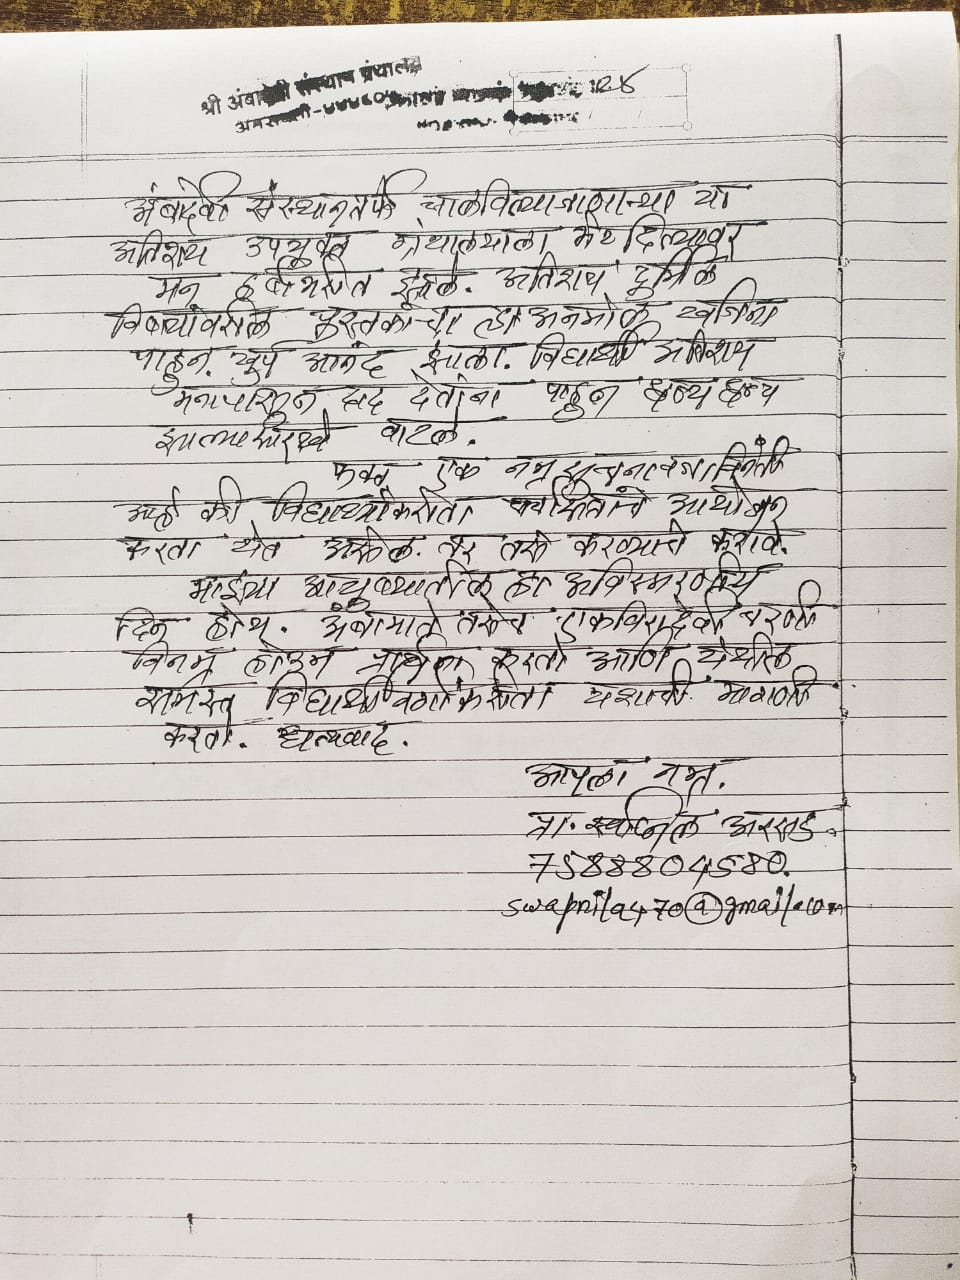 श्री अंबादेवी संस्थान ग्रंथालय
अमरावती-४४४६०१
अंबादेवी संस्थानतर्फे चालविल्या जाणाऱ्या या
अतिशय उपयुक्त ग्रंथालयाला भेट दिल्यावर
मन हर्षोभरीत झाले. अतिशय दुर्मिळ
विषयांवरील पुस्तकांचा हा अनमोल खजिना
पाहून खुप आनंद झाला. विद्यार्थी अतिशय
मनापासून साद देतांना पाहून धन्य धन्य
झाल्यासारखे वाटले.
फक्त एक नम्र सुचनावजा विनंती
आहे की विद्यार्थ्यांकरीता चर्चासत्रांचे आयोजन
करता येत असेल तर तसे करण्याचे करावे.
माझ्या आयुष्यातील हा अविस्मरणीय
दिन होय. अंबामाते तसेच एकविरादेवी चरणी
विनम्र होऊन प्रार्थना करतो आणि येथील
समस्त विद्यार्थी वर्गाकरीता यशाची मागणी
करतो. धन्यवाद.
आपला नम्र.
प्रा. स्वप्निल अरसड.
7588804580.
swapnila470@gmail.com